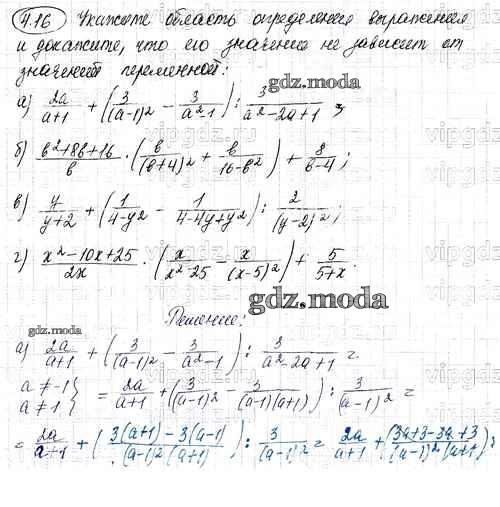 4.16 Укажите область определения выражения
и докажите, что его значение не зависит от
значений переменной:
gdz.moda
а) 2a/(a+1) + (3/(a-1)² - 3/(a²-1)) : 3/(a²-2a+1);
б) (b²+8b+16)/b · (b/(b+4)² + b/(16-b²)) + 8/(b-4);
в) y/(y+2) + (1/(4-y²) - 1/(4-4y+y²)) : 2/(y-2)²;
г) (x²-10x+25)/2x · (x/(x²-25) - x/(x-5)²) + 5/(5+x).
gdz.moda
Решение:
gdz.moda
а) 2a/(a+1) + (3/(a-1)² - 3/(a²-1)) : 3/(a²-2a+1) =
a ≠ -1
a ≠ 1 } = 2a/(a+1) + (3/(a-1)² - 3/((a-1)(a+1))) : 3/(a-1)² =
= 2a/(a+1) + ((3(a+1) - 3(a-1))/((a-1)²(a+1))) : 3/(a-1)² = 2a/(a+1) + ((3a+3-3a+3)/((a-1)²(a+1))) :